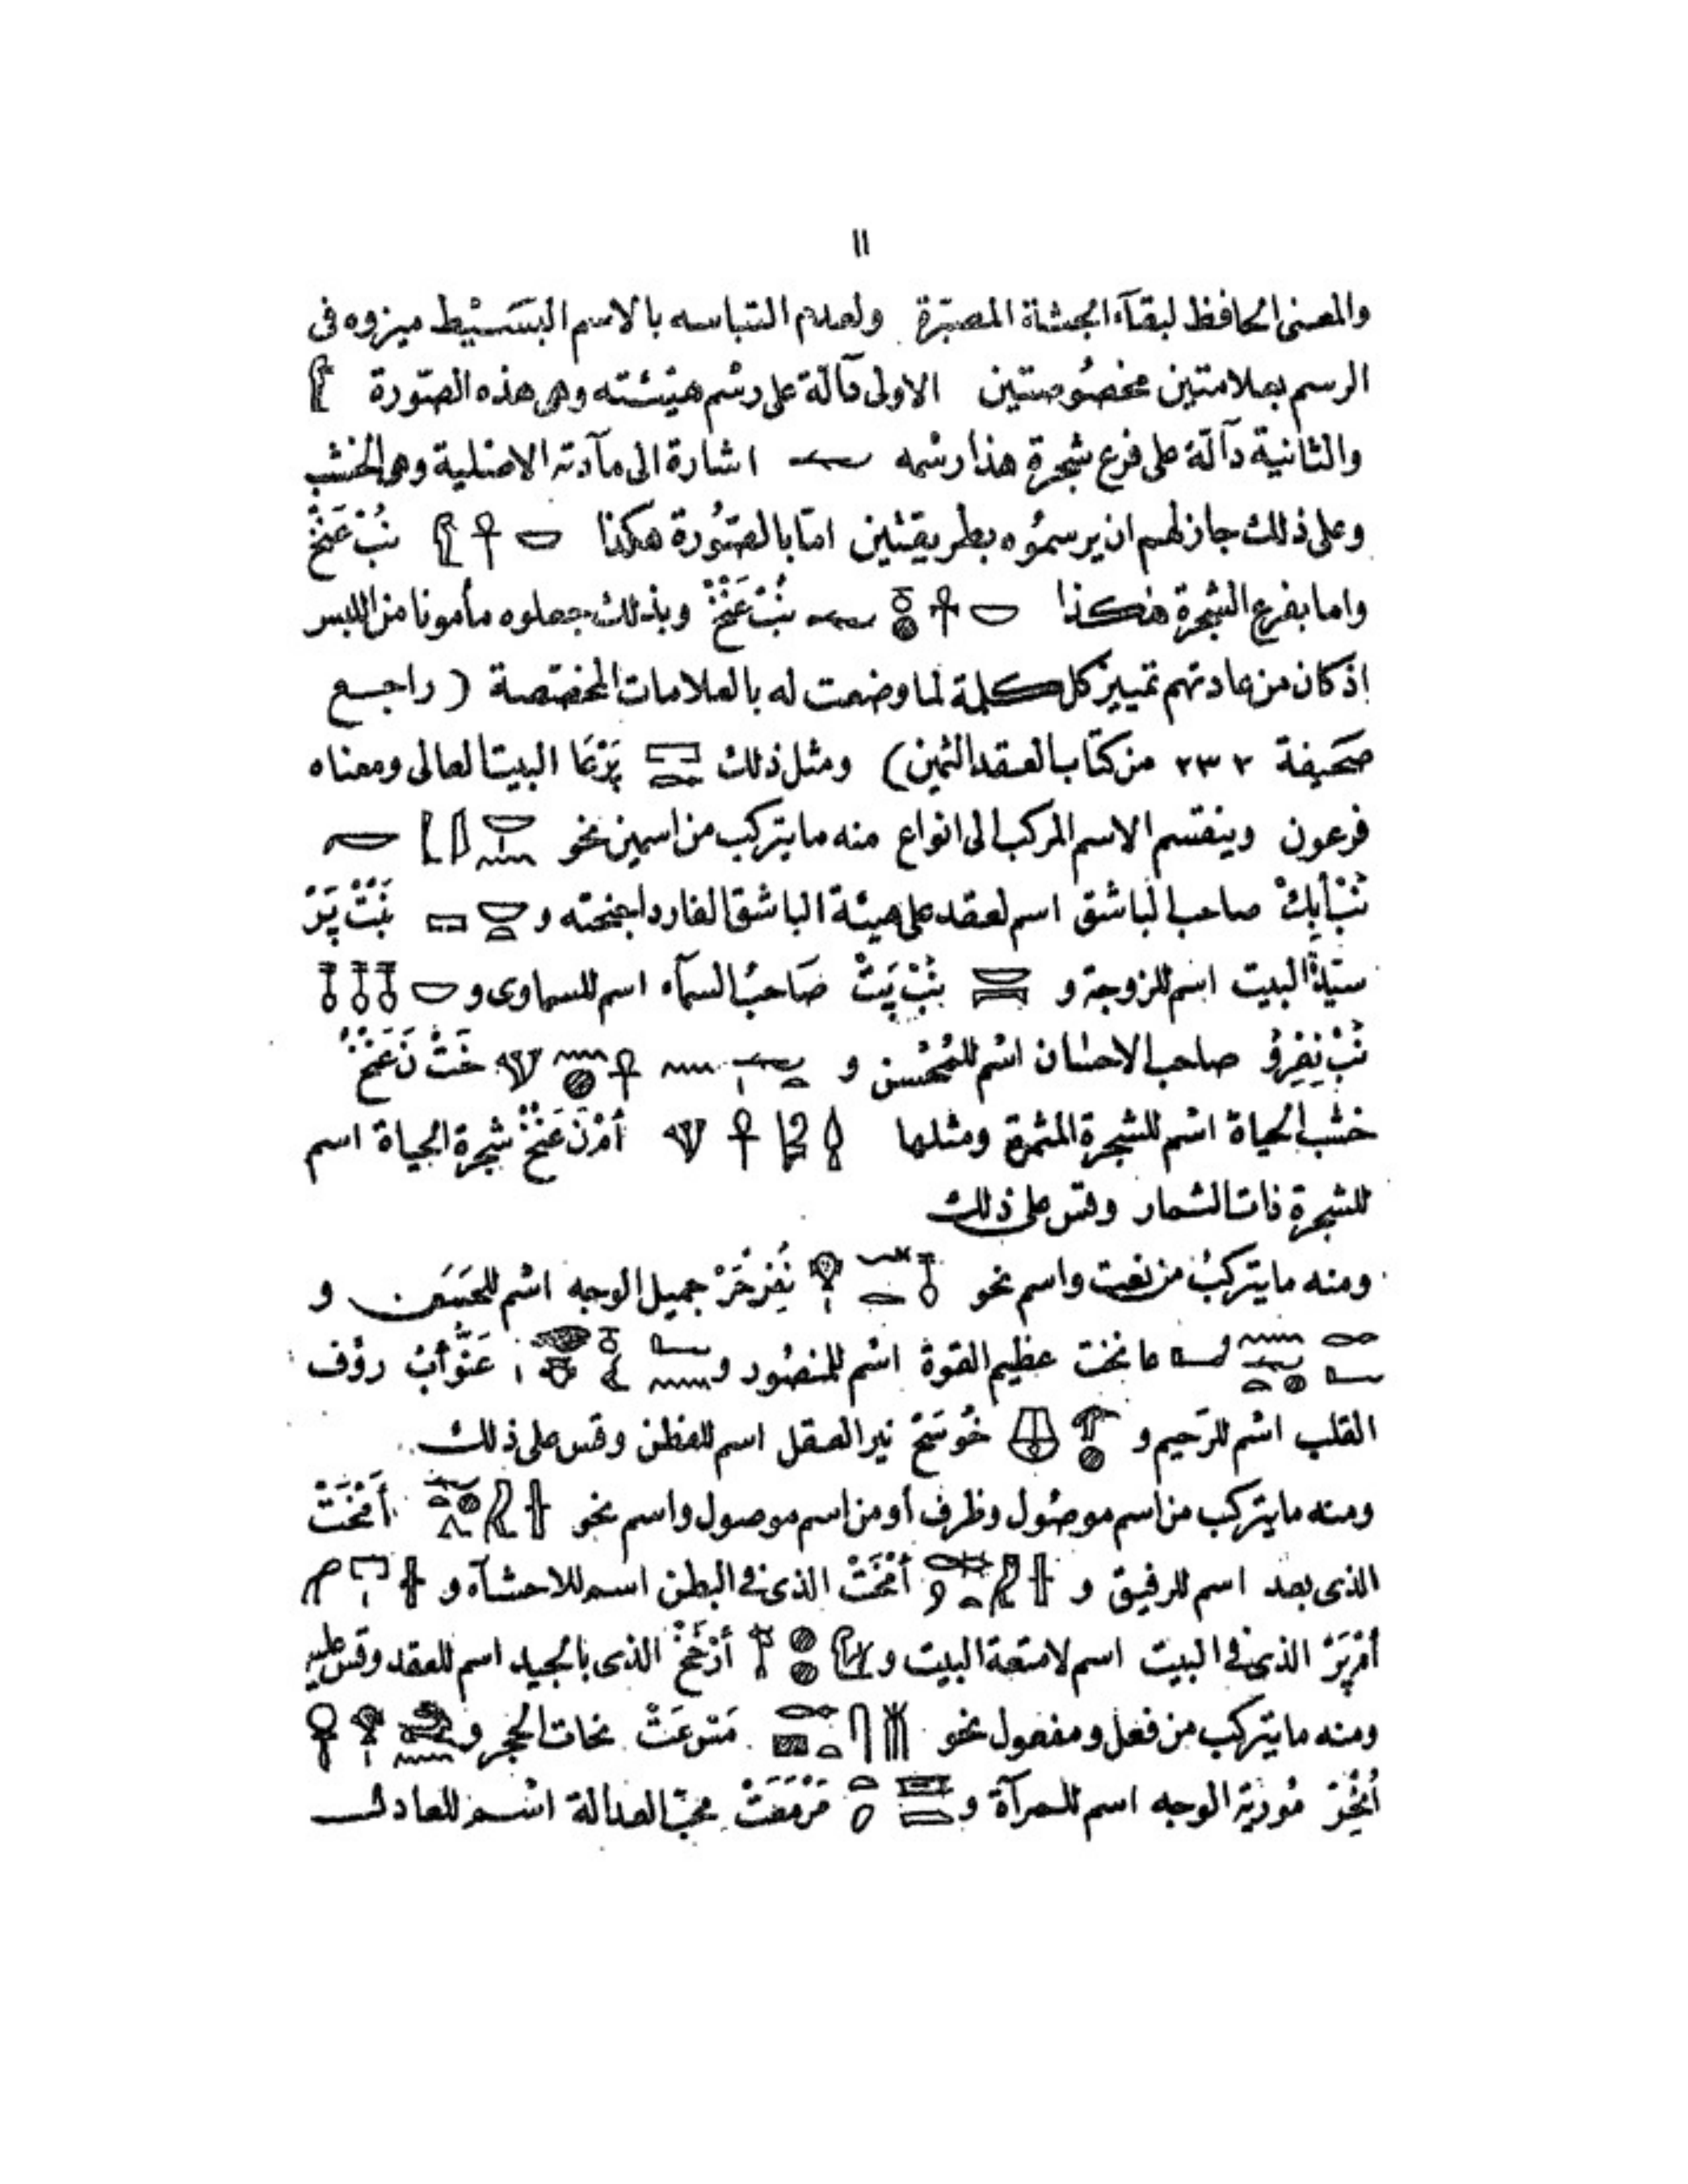 ١١
والمعنى الحافظ لبقآء الجثة المصبّرة ولعدم التباسه بالاسم البَسَيْط ميزوه فى
الرسم بعلامتين مخصُوصتين الاولى دآلّة على رسْم هيئته وهى هذه الصّورة 𓀾
والثانية دآلّة على فرع شجرة هذا رسْمه 𓆱 اشارة الى مآدته الاصْلية وهى الخشب
وعلى ذلك جاز لهم ان يرسمُوه بطريقتين امّا بالصّوُرة هكذا 𓎟 𓋹 𓀾 نُبْ عَنْخْ
واما بفرع الشجرة هكذا 𓎟 𓋹 𓏌 𓐍 𓆱 نُبْ عَنْخْ وبذلك جعلوه مأمونا من اللبس
اذ كان من عادتهم تمييز كل كلمة لما وضعت له بالعلامات المخصّصة (راجع
صَحَيفة ٢٣٢ من كتاب العقد الثمين) ومثل ذلك 𓉐 𓉻 پَرْعَا البيت العالى ومعناه
فرعون وينقسم الاسم المركب الى انواع منه ما يتركب من اسمين نحو
نُبْ أبِكْ صاحب الباشق اسم لعقد على هيئة الباشق الفارد اجنحته و 𓎟 𓏏 𓉐 نَبْتْ پَرْ
ستيّدة البيت اسْم للزوجة و 𓎟 𓇯 نُبْ پَتْ صَاحبُ السمآء اسم للسماوى و 𓎟 𓄤 𓄤 𓄤
نُبْ نِفِرُو صاحب الاحسَان اسْم للمُحْسن و خَتْ نَ عَنْخْ
خشب الحياة اسْم للشجرة المثمرة ومثلها أمْ نَ عَنْخْ شجرة الحياة اسم
للشجرة ذات الثمار وقس على ذلك
ومنه ما يتركبُ من نعت واسم نحو 𓄤 𓆑 𓂋 𓁷 نُفِرْ حَرْ جميل الوجه اسْم للحَسَن و
عا نخت عظيم القوة اسْم للمنصُور و عَنّو أبْ رؤف
القلب اسْم للرّحيم و خُو سَخْ نير العقل اسم للفطن وقس على ذلك
ومنه ما يتركب من اسم موصُول وظرف أو من اسم موصول واسم نحو أمْخَتْ
الذى بعد اسم للرفيق و أمْخَتْ الذى فى البطن اسم للاحشآء و
أمْ پَرْ الذى فى البيت اسم لامتعة البيت و أرْخَخْ الذى بالجيد اسم للعقد وقس عليه
ومنه ما يتركب من فعل ومفعول نحو مَسْ عَتْ نحات الحجر و
مُورية الوجه اسم للمرآة و مَرْمَعَتْ محبّ العدالة اسْم للعادل